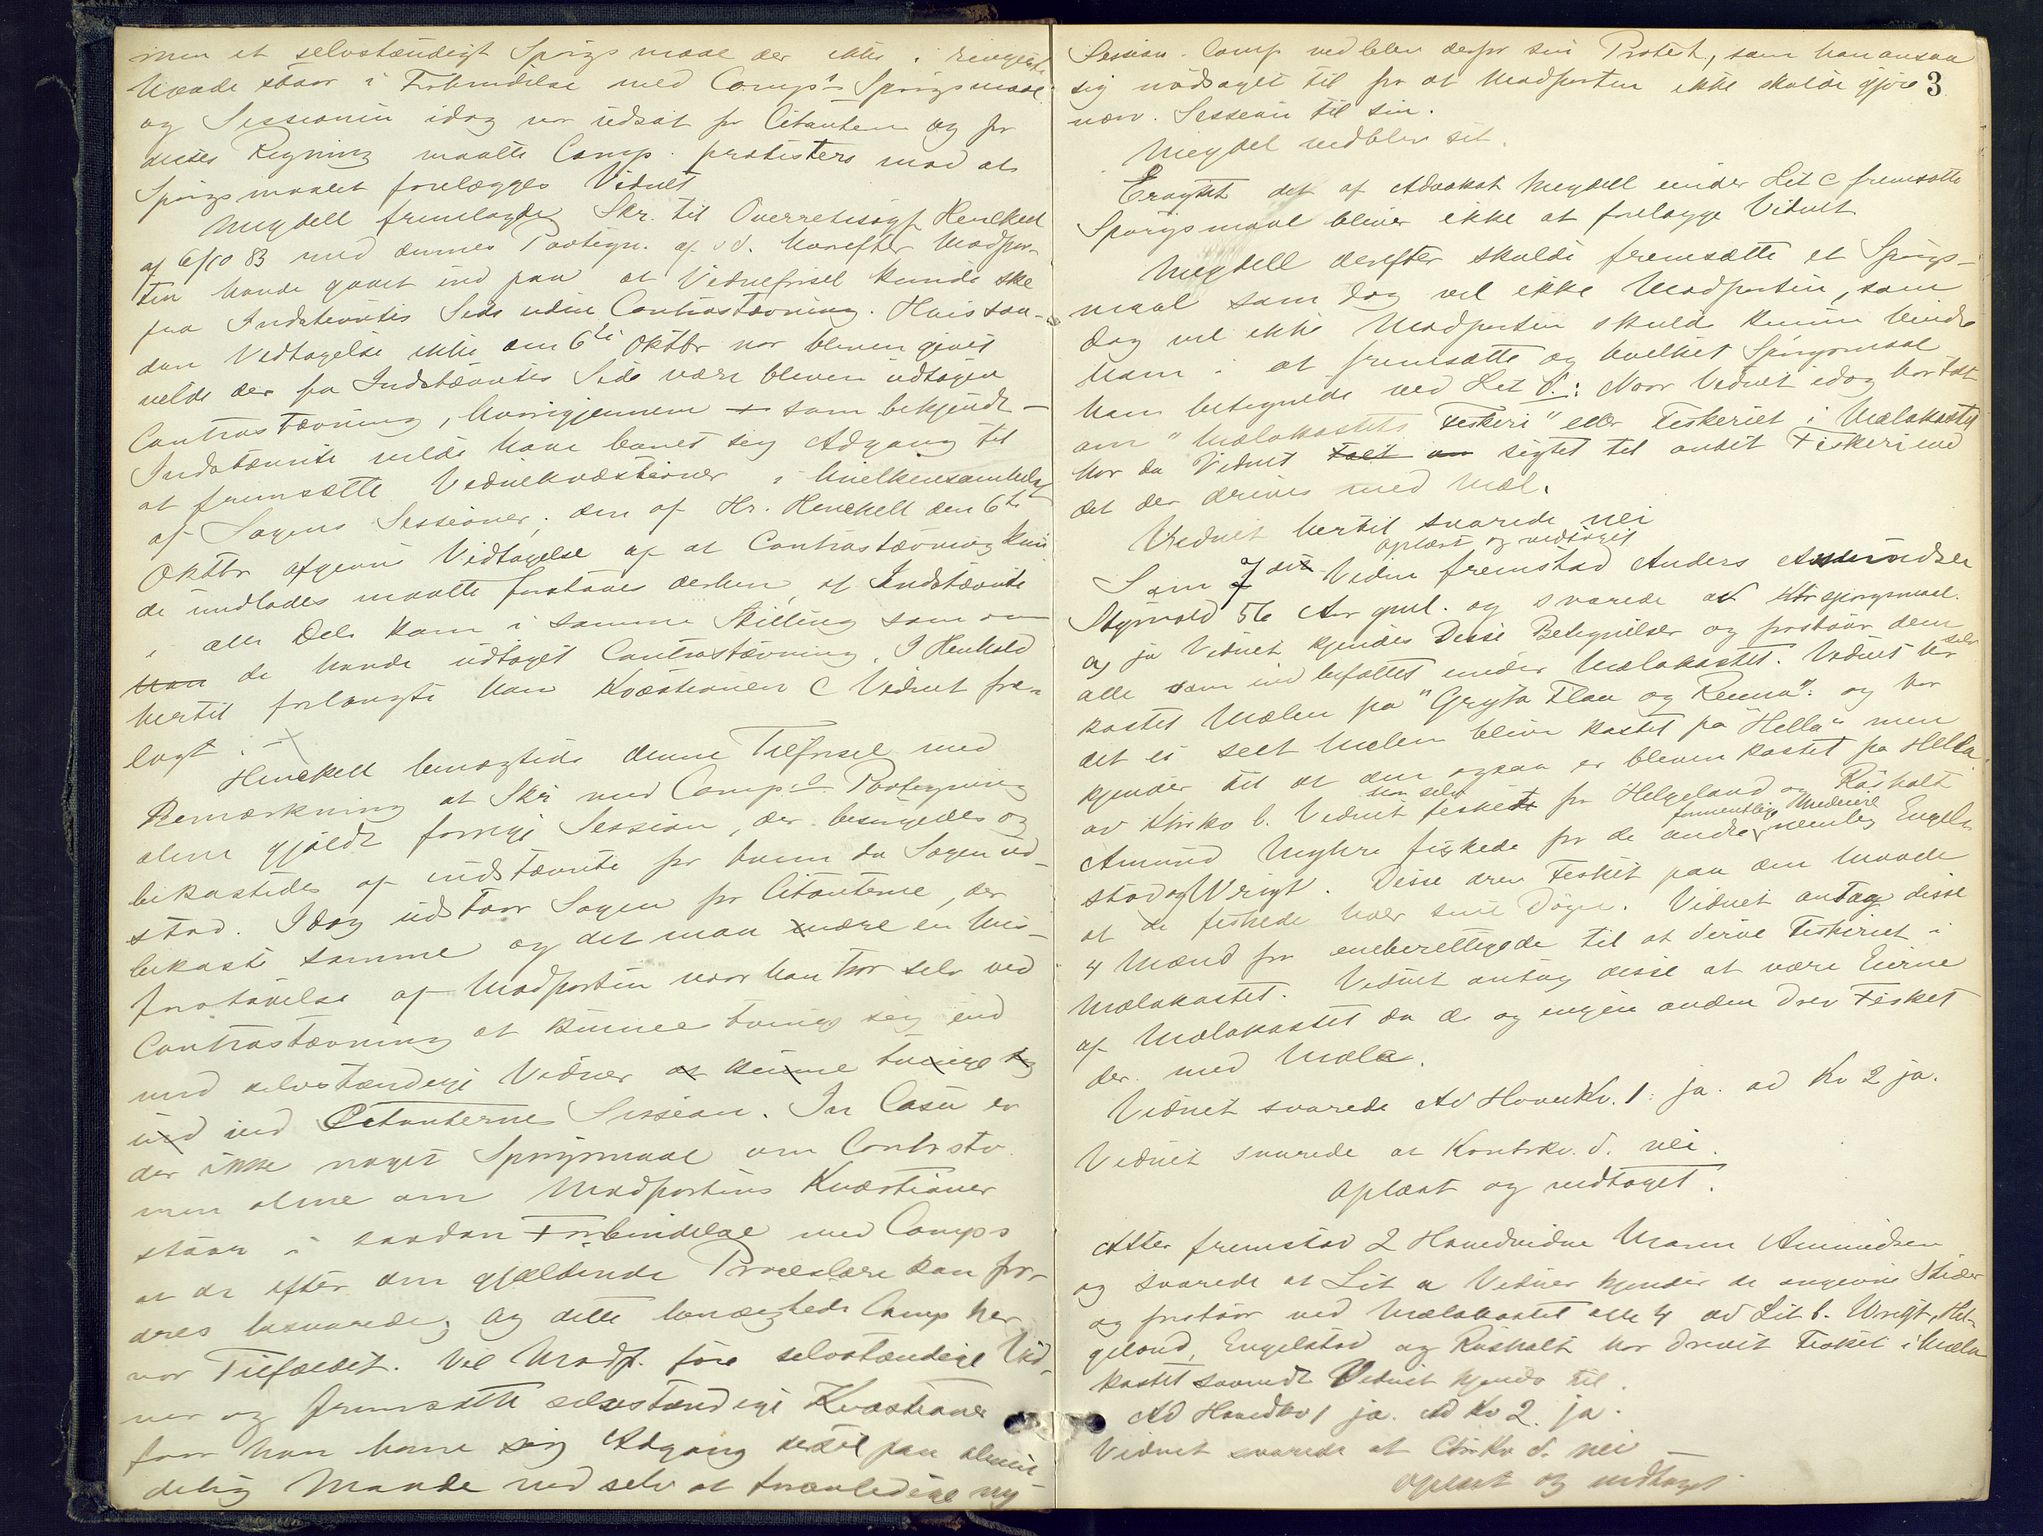 men et selvstændigt Spørgsmaal der ikke i ringeste
Maade staar i Forbindelse med Comp's Spørgsmaal
og Sessionen idag var udsat for Citanten og for
dennes Regning maatte Comp. protestere mod at
Spørgsmaalet forelægges Vidnet
Meydell fremlagde Skr. til Overretssagf. Henckell
af 6/10 83 med dennes Paategn. af s.d. hvorefter Modpar-
ten havde gaaet ind paa at Vidneførsel kunde ske
fra Indstævntes Side uden Contrastævning. Hvis saa-
dan Vedtagelse ikke den 6te Oktbr var bleven givet
vilde der fra Indstævntes Side være bleven udtagen
Contrastævning, hvorigjennem som bekjendt
Indstævnte vilde have banet sig Adgang til
at fremsætte Vidnekvæstioner i hvilkensomhelst
af Sagens Sessioner; den af Hr. Henckell den 6te
Oktbr afgivne Vedtagelse af at Contrastævning kun
de undlades maatte forstaaes derhen, at Indstævnte
i alle Dele kom i samme Stilling som om
han de havde udtaget Contrastævning. I Henhold
hertil forlangte han Kvæstionen C Vidnet fore-
lagt.
Henckell benægtede denne Tilførsel med
Bemærkning at Skr med Comp.s Paategning
alene gjaldt forrige Session, der besørgedes og
bekostedes af indstævnte for hvem da Sagen ud-
stod. Idag udstaar Sagen for Citanterne, der
bekoste samme og det maa være en Mis-
forstaaelse af Modparten naar han tror selv ved
Contrastævning at kunne tvinge sig ind
med selvstændige Vidner at kunne tvinge sig
ind ind Citanternes Session. In Casu er
der ikke noget Spørgsmaal om Contrastv.
men alene om Modpartens Kvæstioner
staar i saadan Forbindelse med Comps
at de efter den gjældende Proceslære kan for-
dres besvarede; og dette benægtede Comp her
var Tilfældet. Vil Modp. føre selvstændige Vid-
ner og fremsætte selvstændige Kvæstioner
faar han bane sig Adgang dertil paa almin
delig Maade ved selv at foranledige ny
3
Session. Comp vedblev derfor sin Protest, som han ansaa
sig nødsaget til for at Modparten ikke skulde gjøre
nærv. Session til sin.
Meydel vedblev sit.
Eragtet det af Advokat Meydell under Lit C fremsatte
Spørgsmaal bliver ikke at forelægge Vidnet
Meydell derefter skulde fremsætte et Spørgs-
maal som dog vel ikke Modparten, som
dog vel ikke Modparten skulde kunne hindre
ham i at fremsætte og hvilket Spørgsmaal
han betegnede ved Lit d.: Naar Vidnet idag har talt
om "Mælakastets Fiskeri" eller Fiskeriet i Mælakastet
har da Vidnet talt om sigtet til andet Fiskeri end
det der drives med Mæl.
Vidnet hertil svarede nei
oplæst og vedtaget
Som 7de Vidne fremstod Anders Amundsen
56 Aar gml. og svarede at
a) ja Vidnet kjendes Disse Betegnelser og forstaar dem
alle som indbefattet under Mælakastet. Vidnet har selv
kastet Mælen på "Gryta Flaa og Renna". og har
det ei seet Mælen blive kastet på "Hella" men
kjender til at den ogsaa er bleven kastet på Hella.
b. Vidnet har selv fisket for Helgeland og Røsholt
Amund Myhre fiskede for de andre formentlige Medeiere nemlig Engel-
stad og Wrigt. Disse drev Fisket paa den Maade
at de fiskede hver sine Døgn. Vidnet antog disse
4 Mænd for eneberettigede til at drive Fiskeriet i
Mælakastet. Vidnet antog disse at være Eierne
af Mælakastet da de og ingen anden drev Fisket
der med Mæla.
Vidnet svarede Ad HovedKv. 1. ja. ad Kv 2 ja.
Vidnet svarede at Kontrkv. d. nei.
Oplæst og vedtaget.
Atter fremstod 2 Hovedvidne Maren Amundsen
og svarede at Lit a Vidnet kjender de angivne Steder
og forstaar ved Mælakastet alle 4 ad Lit b. Wrigt, Hel-
geland, Engelstad og Røsholt har drevet Fisket i Mæla
kastet saavidt Vidnet kjends til.
Ad Hovedkv 1 ja. Ad Kv 2. ja.
Vidnet svarede at Ctr.Kv d. nei
Oplæst og vedtaget